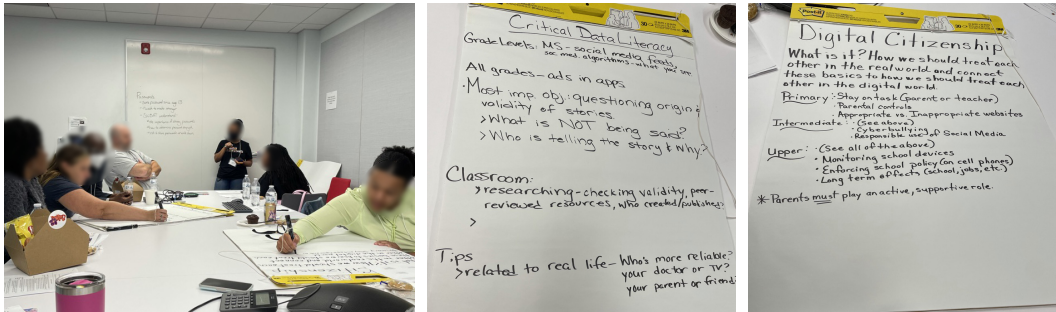 Critical Data Literacy
Grade Levels: MS - social media feeds,
soc med. algorithms - what you see
All grades - ads in apps
· Most imp. obj: questioning origin &
validity of stories
> What is NOT being said?
> Who is telling the story & Why?
Classroom:
> researching - checking validity, peer-
reviewed resources, who created/published
>
Tips
> related to real life - Who's more reliable?
your doctor or TV?
your parent or friend
Post-it
Digital Citizenship
What is it? How we should treat each
other in the real world and connect
these basics to how we should treat each
other in the digital world.
Primary: · Stay on task (parent or teacher)
· Parental controls
· Appropriate vs. Inappropriate websites
Intermediate: · (See above)
· Cyberbullying
· Responsible use of Social Media
Upper: · (See all of the above)
· Monitoring school devices
· Enforcing school policy (on cell phones)
· Long term effects (school, jobs, etc.)
* Parents must play an active, supportive role.